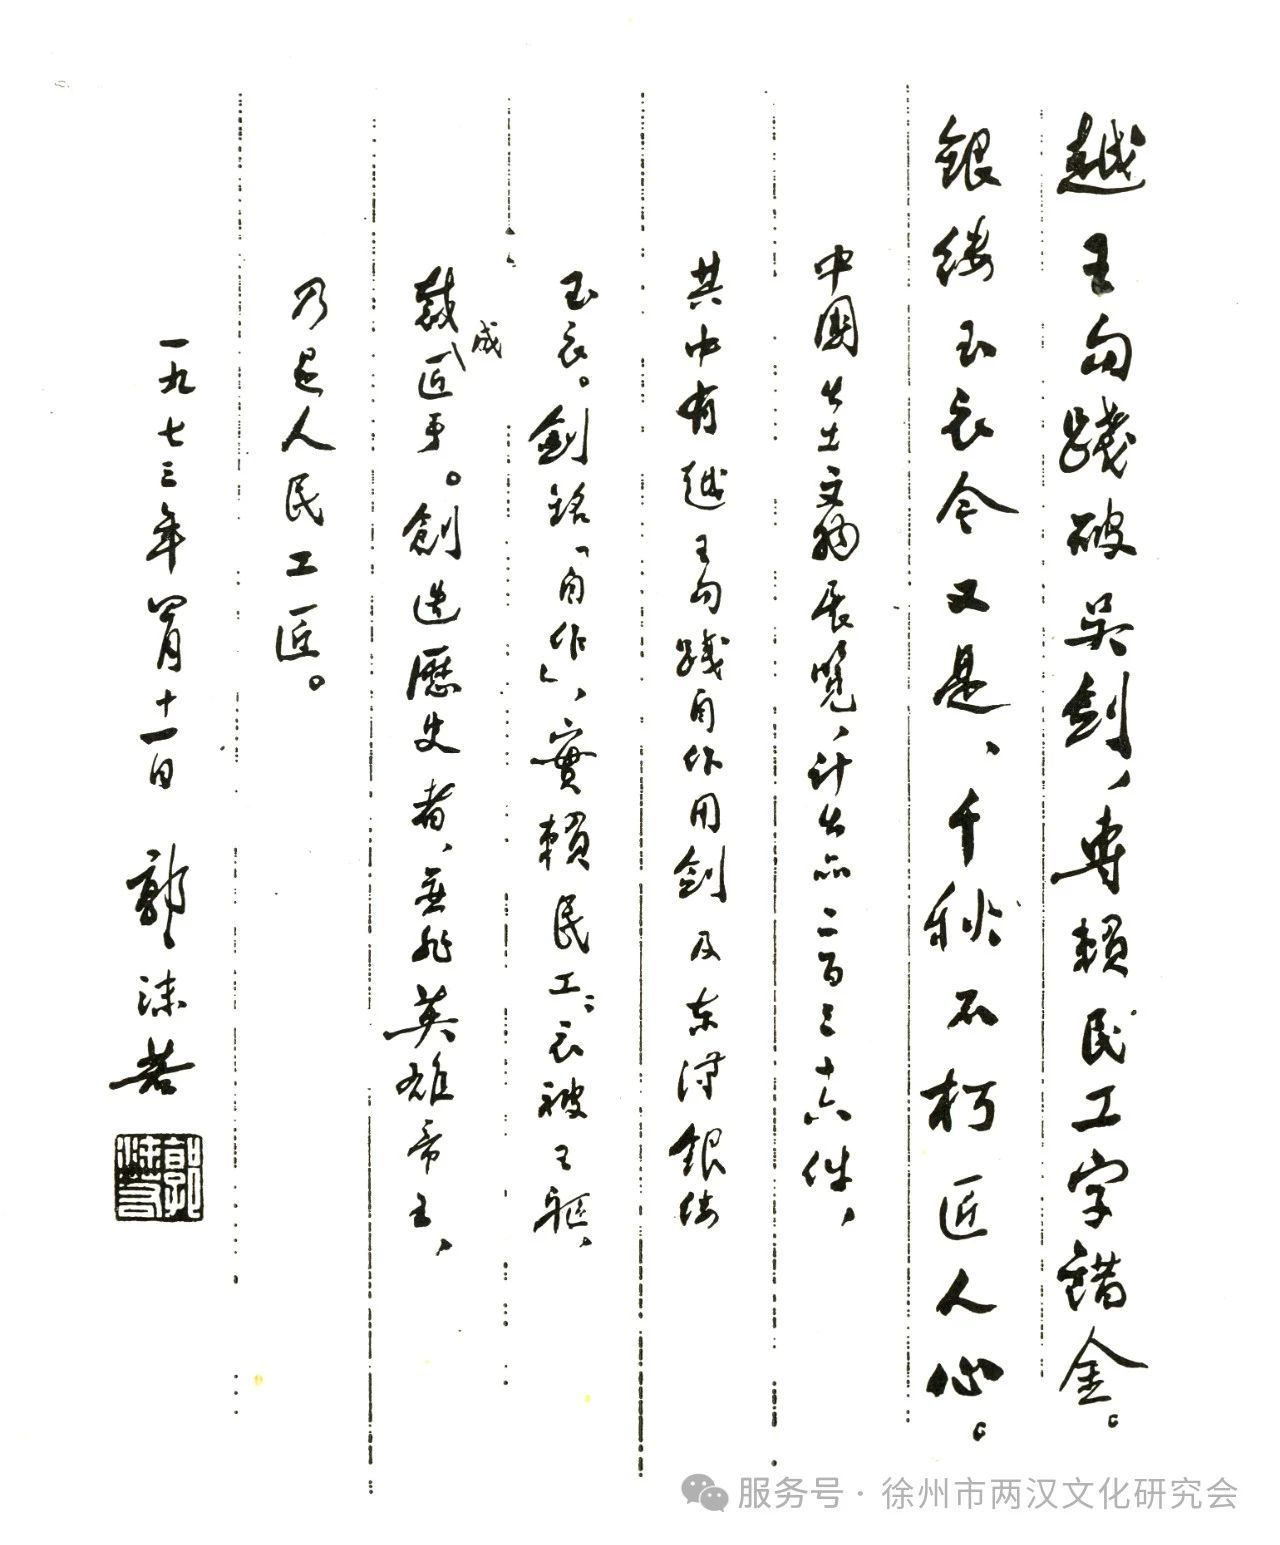 越王勾踐破吳劍，專賴民工字錯金。
銀縷玉衣今又是，千秋不朽匠人心。
中國出土文物展覽，計出品二百三十六件，
其中有越王勾踐自作用劍及东漢銀縷
玉衣。劍銘「自作」，實賴民工；衣被王軀，
裁成匠手。創造歷史者，無非英雄帝王，
乃是人民工匠。
一九七三年四月十一日 郭沫若
郭沫若
服务号·徐州市两汉文化研究会